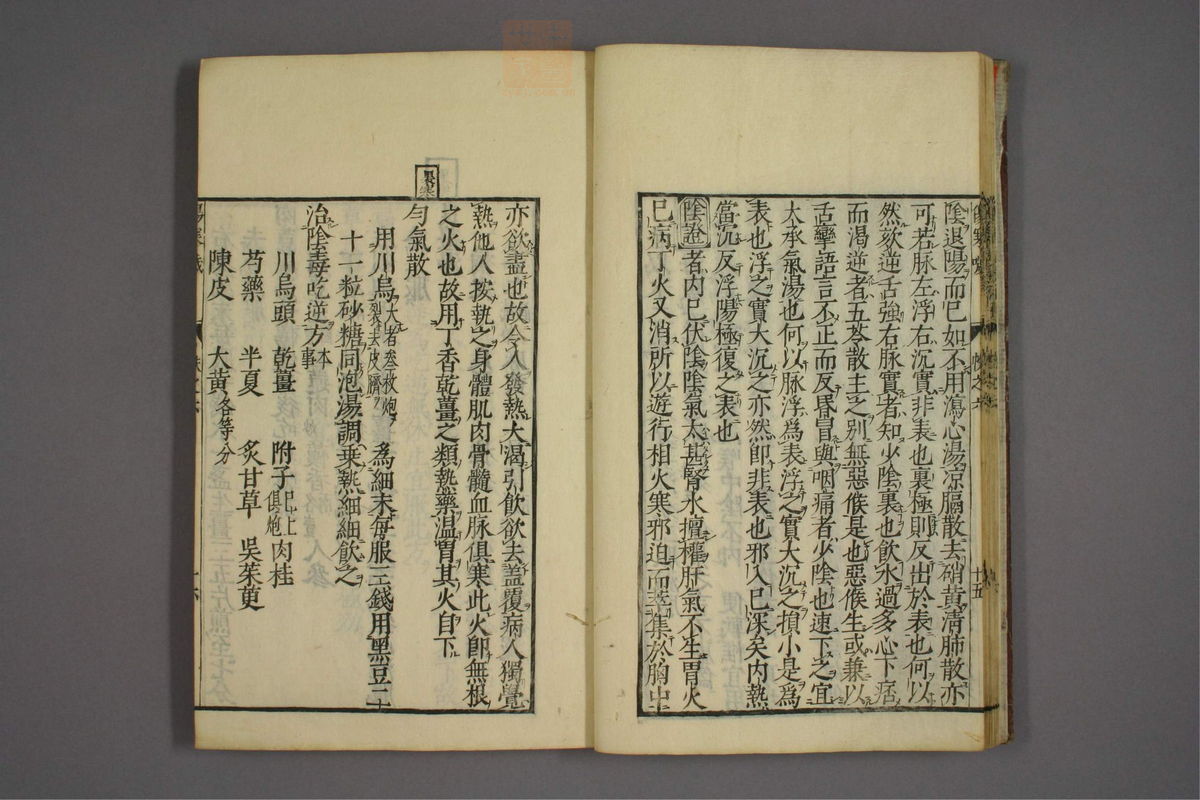 陰退陽而已如不用瀉心湯凉膈散去硝黃淸肺散亦
可若脉左浮右沉實非表也裏極則反出於表也何以
然欬逆舌強右脉實者知少陰裏也飲水過多心下痞
而渴逆者五苓散主之別無惡候是也惡候生或兼以
舌攣語言不正而反昏冒與咽痛者少陰也速下之宜
太承氣湯也何以脉浮爲表浮之實大沉之損小是爲
表也浮之實大沉之亦然即非表也邪入已深矣內熱
當沉反浮陽極復之表也
陰證者內已伏陰陰氣太甚腎水擅權肝氣不生胃火
已病丁火又消所以遊行相火寒邪迫而萃集於胸中
十五
亦欲盡也故令人發熱大渴引飲欲去盖覆病人獨覺
熱他人按執之身體肌肉骨髓血脉俱寒此火即無根
之火也故用丁香乾薑之類熱藥温胃其火自下
勻氣散
用川烏大者叁枚炮裂去皮臍爲細末每服二錢用黑豆二十
十一粒砂糖同泡湯調乘熱細細飲之
治陰毒吃逆方本事
川烏頭 乾薑 附子已上俱炮 肉桂
芍藥 半夏 炙甘草 吳茱萸
陳皮 大黃各等分